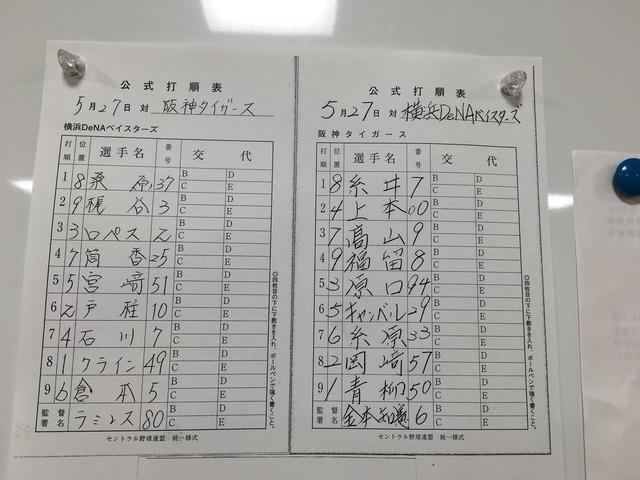 公式打順表
5月27日 対 阪神タイガース
横浜DeNAベイスターズ
打順 位置 選手名 番号 交代
1 8 桑原 37 B D C E
2 9 梶谷 3 B D C E
3 3 ロペス 2 B D C E
4 7 筒香 25 B D C E
5 5 宮﨑 51 B D C E
6 2 戸柱 10 B D C E
7 4 石川 7 B D C E
8 1 クライン 49 B D C E
9 6 倉本 5 B D C E
監督 署名 ラミレス 80 B D C E
◎四枚目の下に下敷きを入れ、ボールペンで強く書くこと。
セントラル野球連盟 統一様式
公式打順表
5月27日 対 横浜DeNAベイスターズ
阪神タイガース
打順 位置 選手名 番号 交代
1 8 糸井 7 B D C E
2 4 上本 00 B D C E
3 7 高山 9 B D C E
4 9 福留 8 B D C E
5 3 原口 94 B D C E
6 5 キャンベル 29 B D C E
7 6 糸原 33 B D C E
8 2 岡﨑 57 B D C E
9 1 青柳 50 B D C E
監督 署名 金本知憲 6 B D C E
◎四枚目の下に下敷きを入れ、ボールペンで強く書くこと。
セントラル野球連盟 統一様式